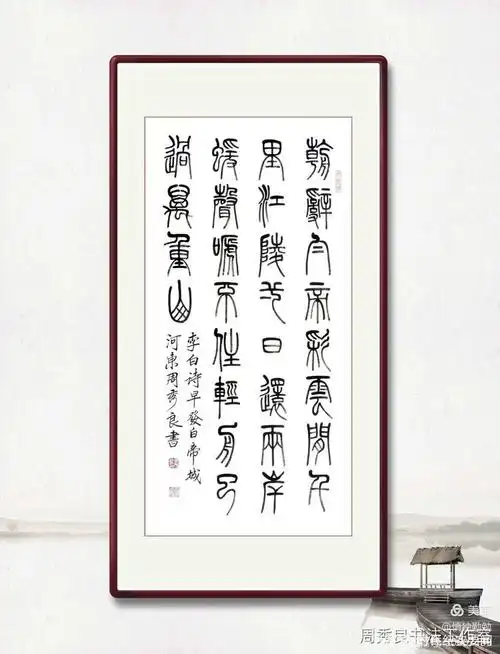 朝辭白帝彩雲間千
里江陵弌日還兩岸
蝯聲嗁不住輕舟已
過萬重山
李白诗早發白帝城
河東周秀良書
周秀良书法工作室